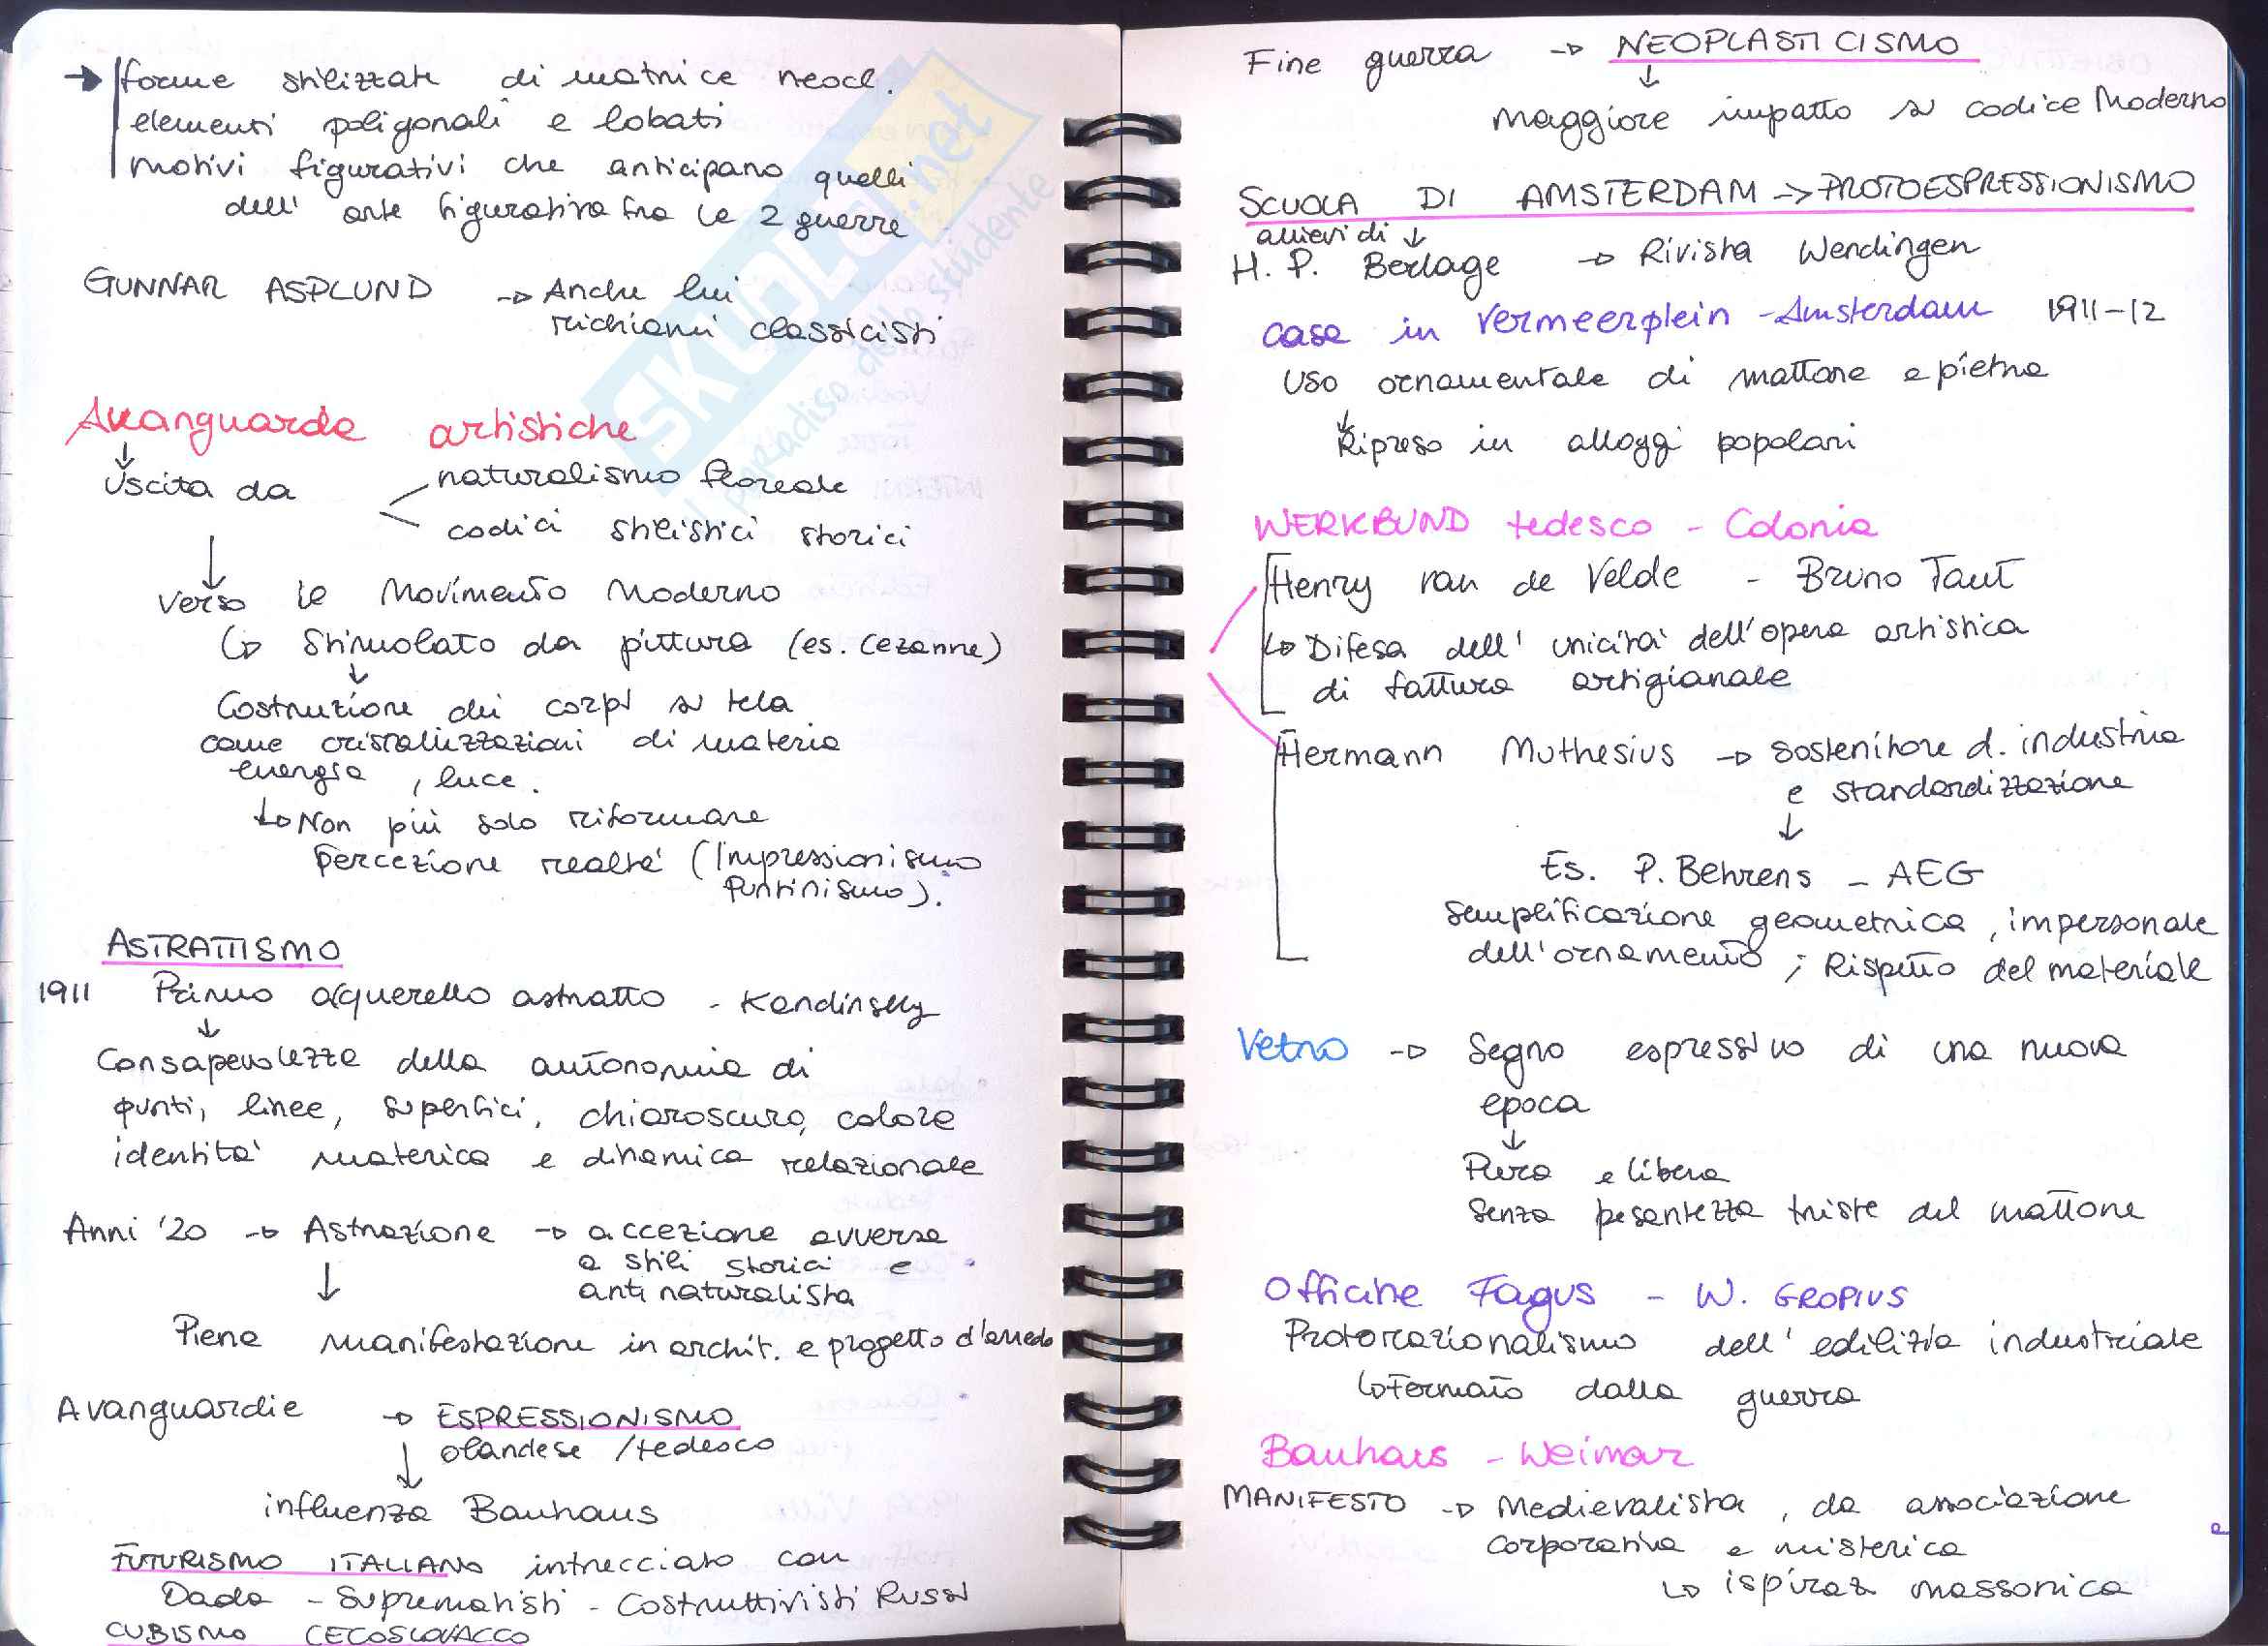 → forme stilizzate di matrice neocl.
elementi poligonali e lobati
motivi figurativi che anticipano quelli
dell' arte figurativa fra le 2 guerre
GUNNAR ASPLUND → Anche lui
richiami classicisti
Avanguardie artistiche
↓
Uscita da naturalismo floreale
codici stilistici storici
↓
verso il Movimento Moderno
↳ Stimolato da pittura (es. Cezanne)
↓
Costruzione dei corpi su tela
come cristallizzazioni di materia
energia, luce.
↳ Non più solo riformare
percezione realtà (Impressionismo
Puntinismo).
ASTRATTISMO
1911 Primo acquerello astratto - Kandinsky
↓
Consapevolezza della autonomia di
punti, linee, superfici, chiaroscuro, colore
identità materica e dinamica relazionale
Anni '20 → Astrazione → accezione avversa
a stili storici e
anti naturalista
↓
Piena manifestazione in archit. e progetto d'arredo
Avanguardie → ESPRESSIONISMO
olandese / tedesco
↓
influenza Bauhaus
FUTURISMO ITALIANO intrecciato con
Dada - Suprematisti - Costruttivisti Russi
CUBISMO CECOSLOVACCO
Fine guerra → NEOPLASTICISMO
↓
Maggiore impatto su codice Moderno
SCUOLA DI AMSTERDAM → PROTOESPRESSIONISMO
allievi di ↓
H. P. Berlage → Rivista Wendingen
case in Vermeerplein - Amsterdam 1911-12
Uso ornamentale di mattone e pietra
↓
Ripreso in alloggi popolari
WERKBUND tedesco - Colonia
Henry van de Velde - Bruno Taut
↳ Difesa dell' unicità dell'opera artistica
di fattura artigianale
Hermann Muthesius → Sostenitore d. industria
e standardizzazione
↓
Es. P. Behrens - AEG
semplificazione geometrica, impersonale
dell'ornamento ; Rispetto del materiale
Vetro → Segno espressivo di una nuova
epoca
↓
Pura e libera
Senza pesantezza triste del mattone
Officine Fagus - W. GROPIUS
Protorazionalismo dell' edilizia industriale
↳ Fermato dalla guerra
Bauhaus - Weimar
MANIFESTO → Medievalista, da associazione
corporativa e misterica
↳ ispiraz massonica
SKUOLA.net
il paradiso dello studente